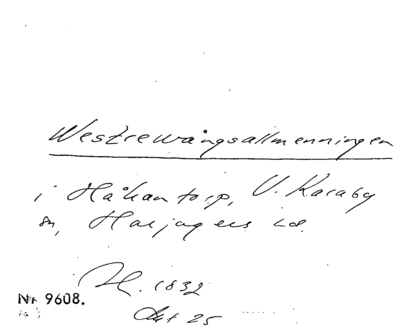 Westrewångsallmenningen
i Håkantorp, V. Karaby
sn, Harjagers hd.
1832
Okt 25
Nr 9608.